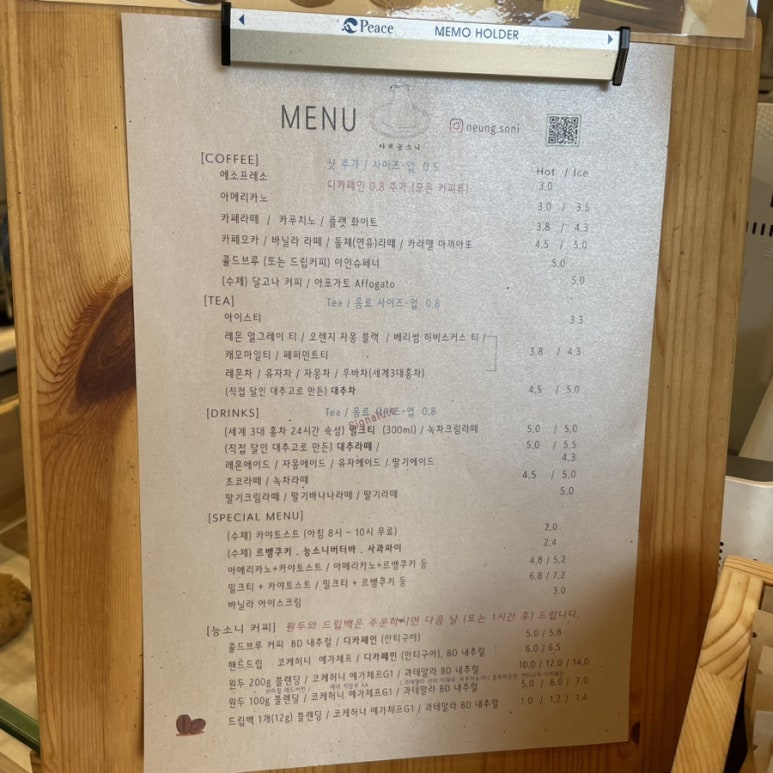 Peace MEMO HOLDER
MENU
카페 능소니
neung.soni
[COFFEE] 샷 추가 / 사이즈-업 0.5
Hot / Ice
에소프레소 디카페인 0.8 추가 (모든 커피류) 3.0
아메리카노 3.0 / 3.5
카페라떼 / 카푸치노 / 플랫 화이트 3.8 / 4.3
카페모카 / 바닐라 라떼 / 돌체(연유)라떼 / 카라멜 마끼아또 4.5 / 5.0
콜드브루 (또는 드립커피) 아인슈페너 5.0
(수제) 달고나 커피 / 아포가토 Affogato 5.0
[TEA] Tea / 음료 사이즈-업 0.8
아이스티 3.3
레몬 얼그레이 티 / 오렌지 자몽 블랙 / 베리썸 히비스커스 티 /
캐모마일티 / 페퍼민트티 3.8 / 4.3
레몬차 / 유자차 / 자몽차 / 우바차(세계3대홍차)
(직접 달인 대추고로 만든) 대추차 4.5 / 5.0
[DRINKS] Tea / 음료 사이즈-업 0.8
Signature
(세계 3대 홍차 24시간 숙성) 밀크티 (300ml) / 녹차크림라떼 5.0 / 5.0
(직접 달인 대추고로 만든) 대추라떼 / 5.0 / 5.5
레몬에이드 / 자몽에이드 / 유자에이드 / 딸기에이드 4.3
초코라떼 / 녹차라떼 4.5 / 5.0
딸기크림라떼 / 딸기바나나라떼 / 딸기라떼 5.0
[SPECIAL MENU]
(수제) 카야토스트 (아침 8시 ~ 10시 무료) 2.0
(수제) 르뱅쿠키 . 능소니버터바 . 사과파이 2.4
아메리카노+카야토스트 / 아메리카노+르뱅쿠키 등 4.8 / 5.2
밀크티 + 카야토스트 / 밀크티 + 르뱅쿠키 등 6.8 / 7.2
바닐라 아이스크림 3.0
[능소니 커피] 원두와 드립백은 주문하시면 다음 날 (또는 1시간 후) 드립니다.
콜드브루 커피 BD 내추럴 / 디카페인 (안티구아) 5.0 / 5.8
핸드드립 코케허니 예가체프 / 디카페인 (안티구아), BD 내추럴 6.0 / 6.5
원두 200g 블렌딩 / 코케허니 예가체프G1 / 과테말라 BD 내추럴 10.0 / 12.0 / 14.0
원두 100g 블렌딩 / 코케허니 예가체프G1 / 과테말라 BD 내추럴 5.0 / 6.0 / 7.0
드립백 1개(12g) 블렌딩 / 코케허니 예가체프G1 / 과테말라 BD 내추럴 1.0 / 1.2 / 1.4